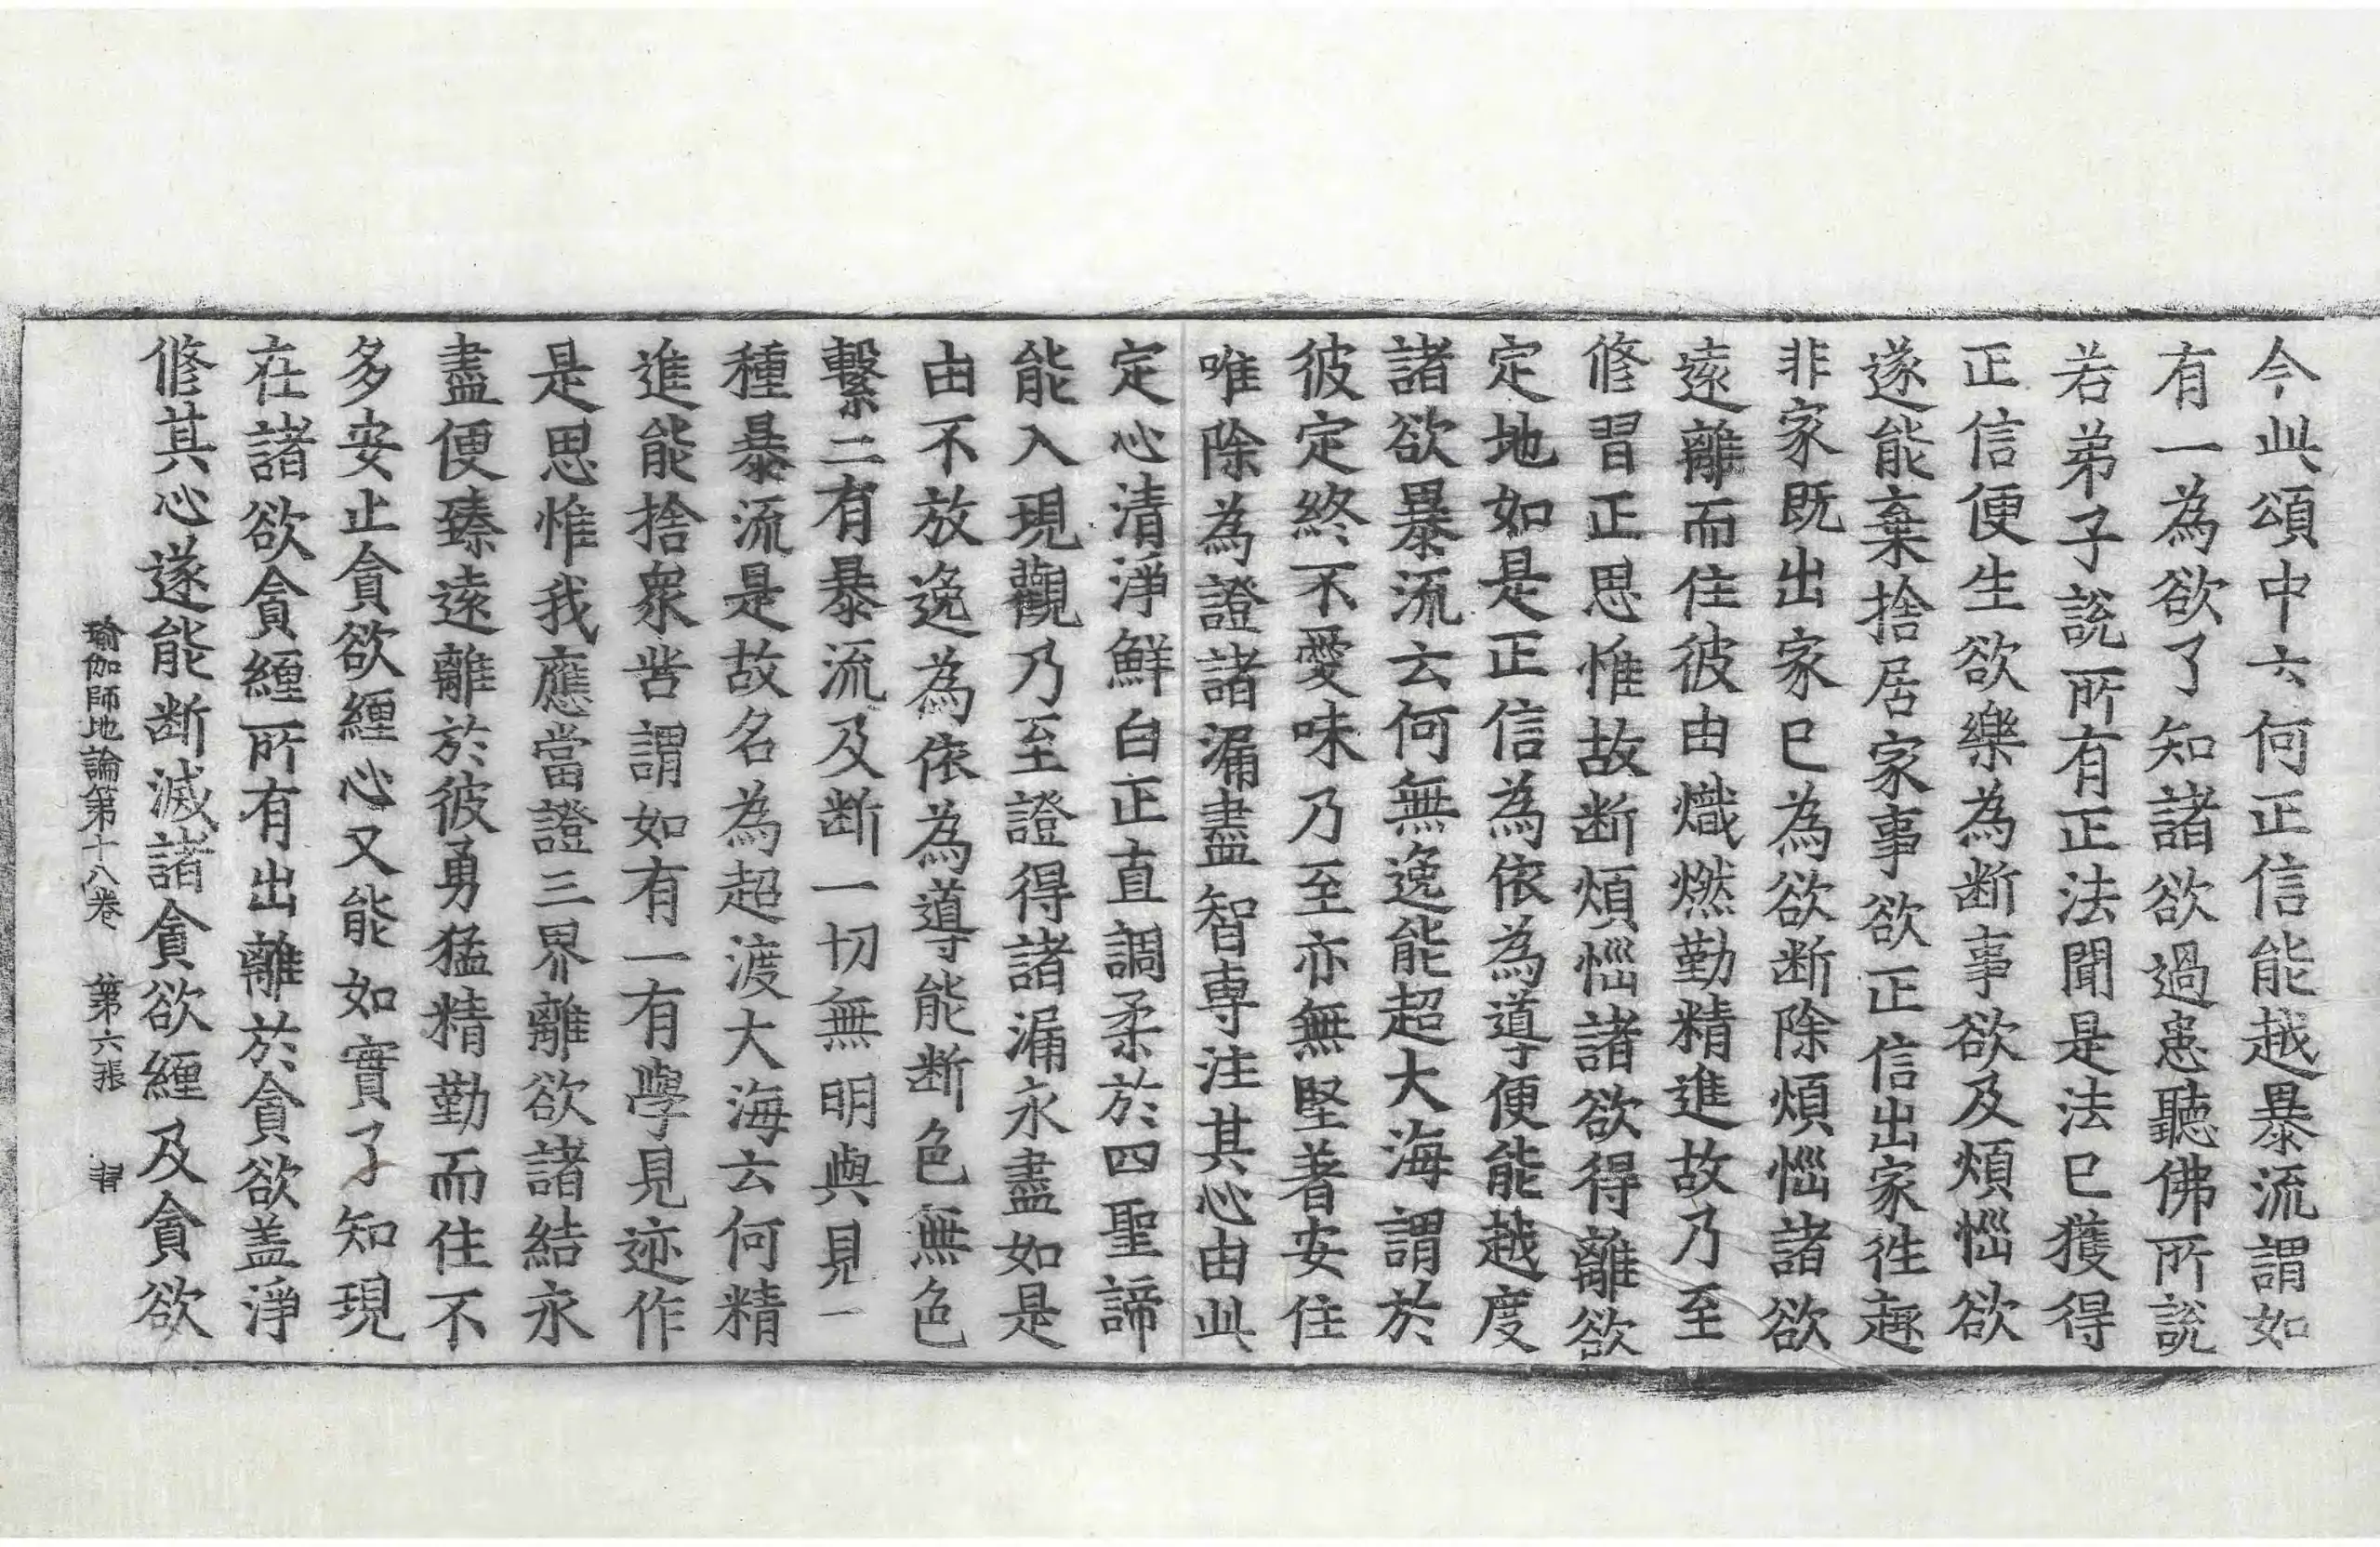 今此頌中六何正信能越暴流謂如
有一為欲了知諸欲過患聽佛所說
若弟子說所有正法聞是法已獲得
正信便生欲樂為断事欲及煩惱欲
遂能棄捨居家事欲正信出家徃趣
非家既出家已為欲断除煩惱諸欲
遠離而住彼由熾燃勤精進故乃至
修習正思惟故断煩惱諸欲得離欲
定地如是正信為依為導便能越度
諸欲暴流云何無逸能超大海謂於
彼定終不愛味乃至亦無堅著安住
唯除為證諸漏盡智専注其心由此
定心清淨鮮白正直調柔於四聖諦
能入現觀乃至證得諸漏永盡如是
由不放逸為依為導能断色無色
繫二有暴流及断一切無明與見一
種暴流是故名為超渡大海云何精
進能捨衆苦謂如有一有學見迹作
是思惟我應當證三界離欲諸結永
盡便臻遠離於彼勇猛精勤而住不
多安止貪欲纏心又能如實了知現
在諸欲貪纏所有出離於貪欲盖淨
修其心遂能断滅諸貪欲纏及貪欲
瑜伽師地論第十八卷　第六張